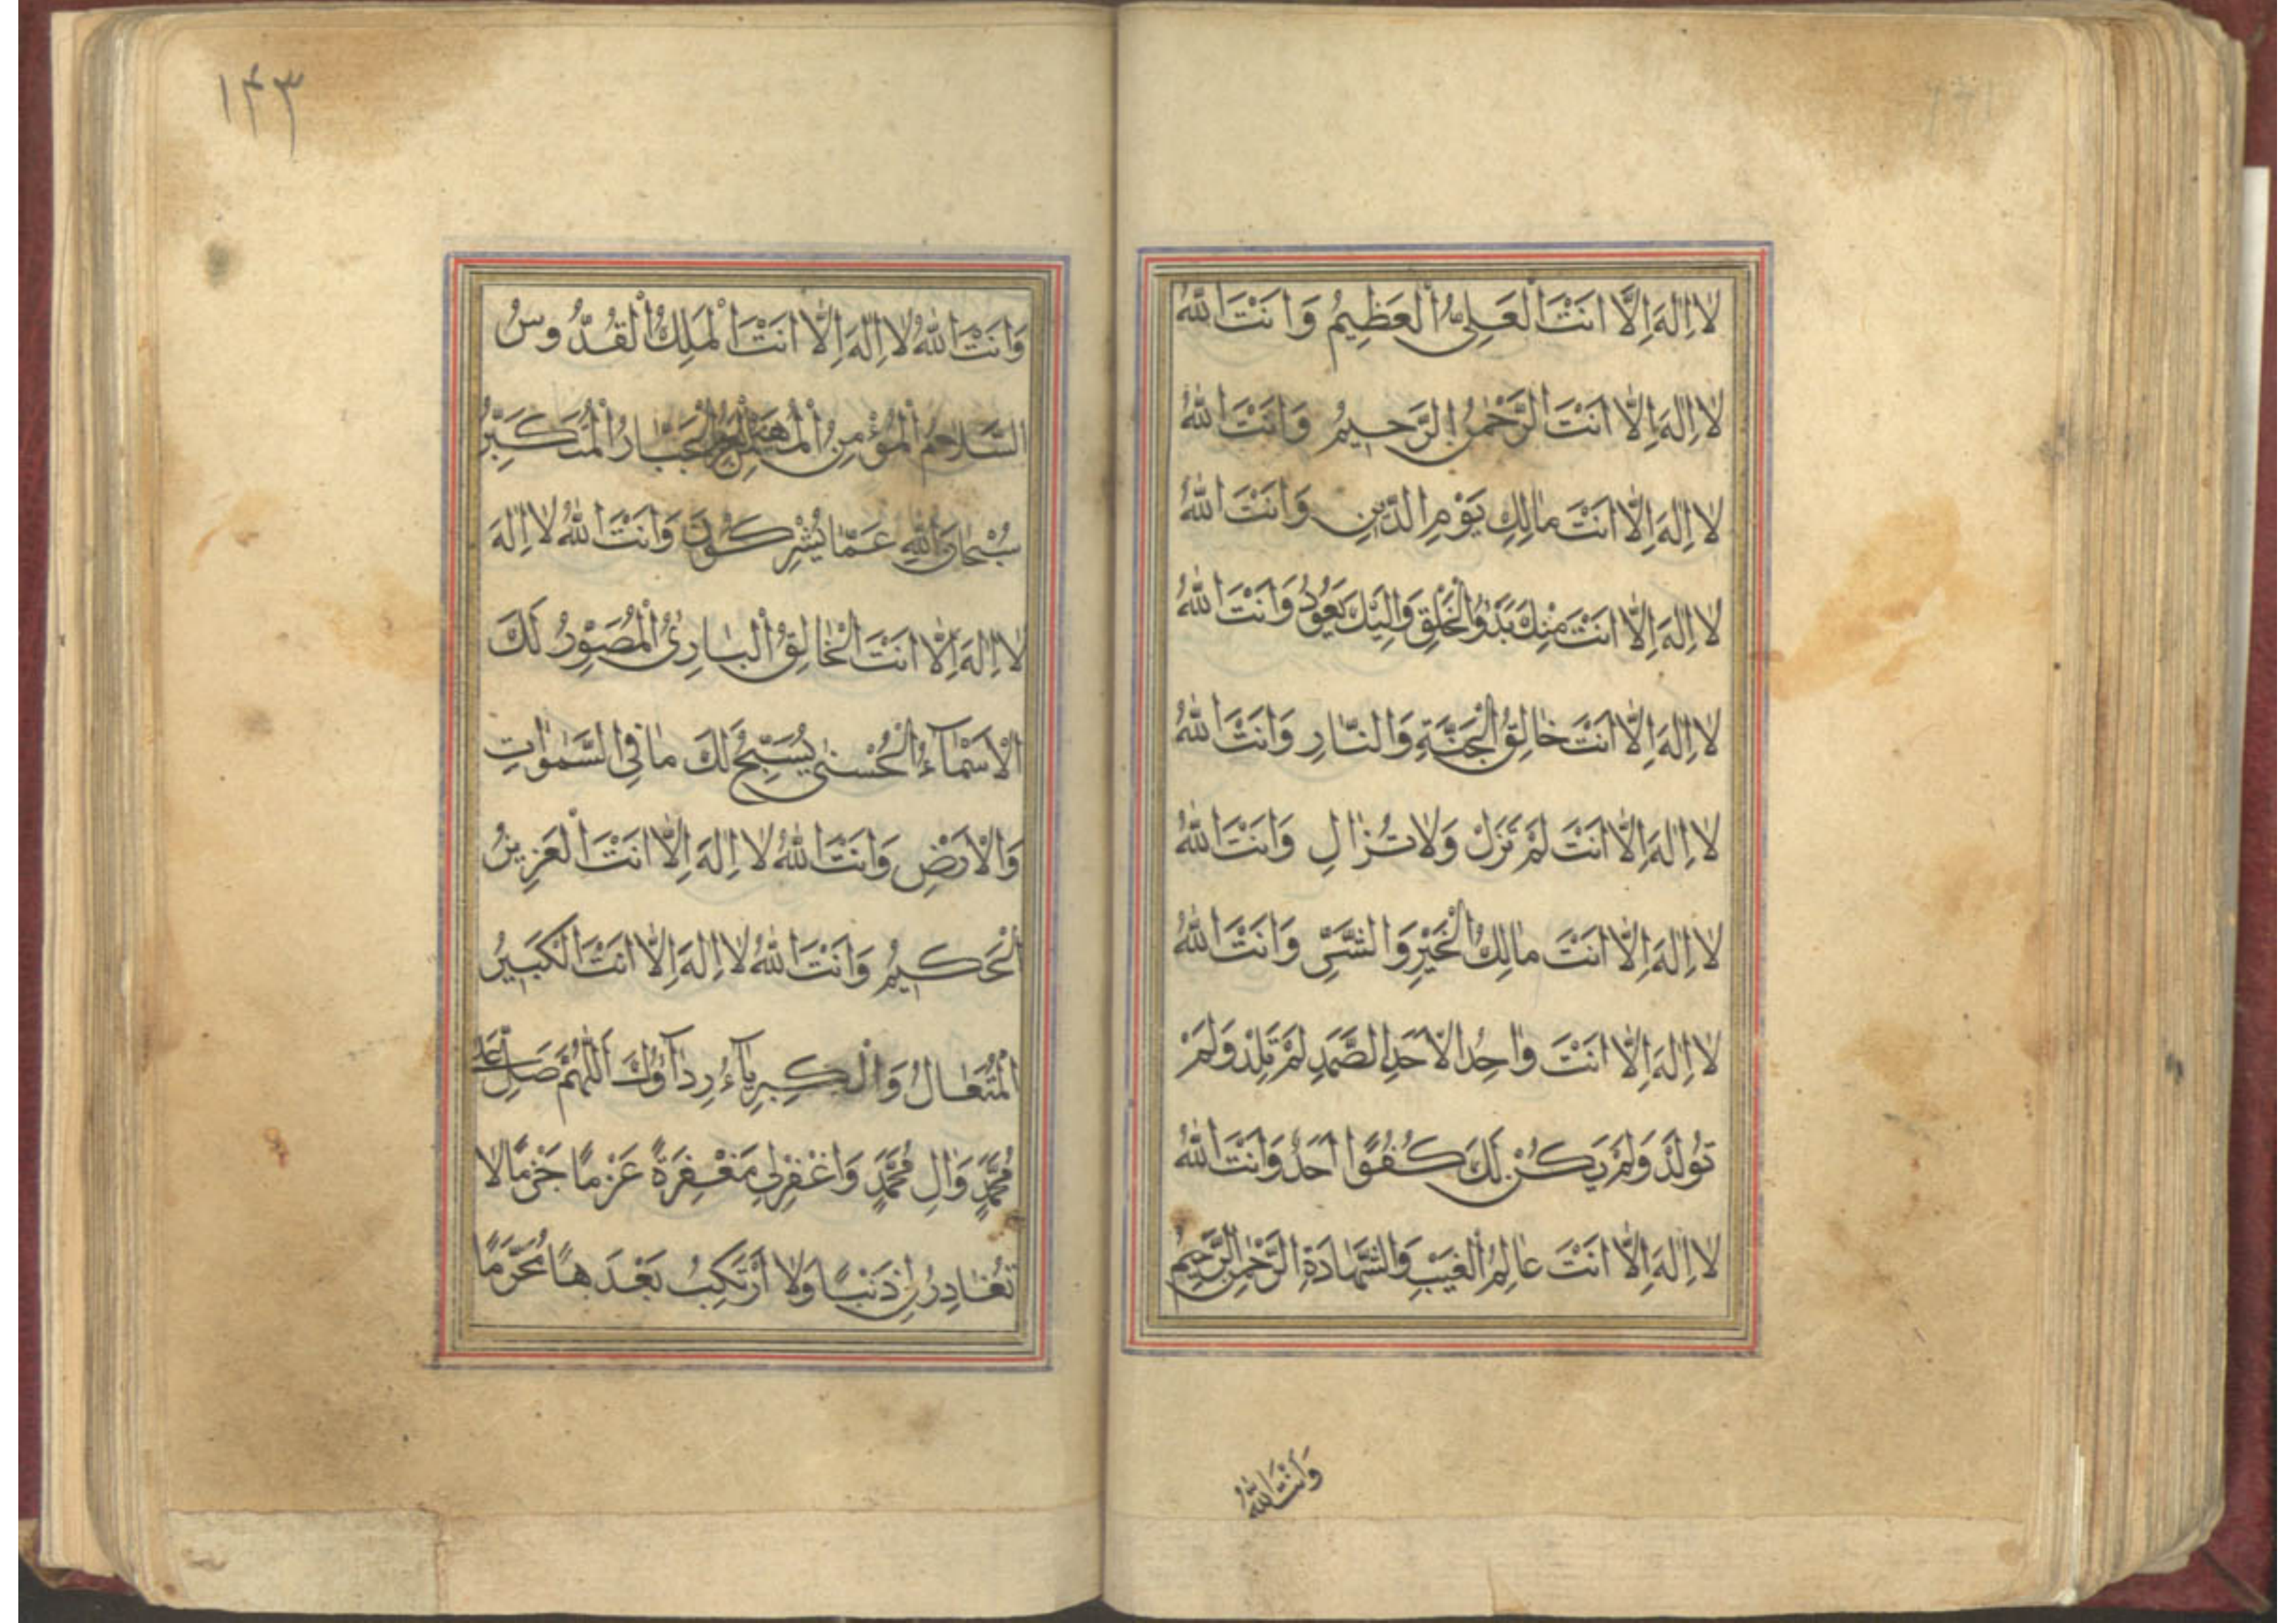 لَا اِلٰهَ اِلَّا اَنْتَ الْعَلِیُّ الْعَظِیمُ وَاَنْتَ اللّٰهُ
لَا اِلٰهَ اِلَّا اَنْتَ الرَّحْمٰنُ الرَّحِیمُ وَاَنْتَ اللّٰهُ
لَا اِلٰهَ اِلَّا اَنْتَ مٰالِكِ یَوْمِ الدِّینِ وَاَنْتَ اللّٰهُ
لَا اِلٰهَ اِلَّا اَنْتَ مِنْكَ بَدْوُ الْخَلْقِ وَاِلَیْكَ یَعُودُ وَاَنْتَ اللّٰهُ
لَا اِلٰهَ اِلَّا اَنْتَ خٰالِقُ الْجَنَّةِ وَالنّٰارِ وَاَنْتَ اللّٰهُ
لَا اِلٰهَ اِلَّا اَنْتَ لَمْ تَزَلْ وَلٰا تُزٰالِ وَاَنْتَ اللّٰهُ
لَا اِلٰهَ اِلَّا اَنْتَ مٰالِكُ الْخَیْرِ وَالشَّرِّ وَاَنْتَ اللّٰهُ
لَا اِلٰهَ اِلَّا اَنْتَ وٰاحِدُ الْاَحَدِ الصَّمَدِ لَمْ تَلِدْ وَلَمْ
تُولَدْ وَلَمْ یَكُنْ لَكَ كُفُوًا اَحَدٌ وَاَنْتَ اللّٰهُ
لَا اِلٰهَ اِلَّا اَنْتَ عٰالِمُ الْغَیْبِ وَالشَّهٰادَةِ الرَّحْمٰنِ الرَّحِیمُ
وَاَنْتَ اللّٰهُ
۱۴۳
وَاَنْتَ اللّٰهُ لَا اِلٰهَ اِلَّا اَنْتَ الْمَلِكُ الْقُدُّوسُ
السَّلٰامُ الْمُؤْمِنُ الْمُهَیْمِنُ الْعَزِیزُ الْجَبّٰارُ الْمُتَكَبِّرُ
سُبْحٰانَ اللّٰهِ عَمّٰا یُشْرِكُونَ وَاَنْتَ اللّٰهُ لَا اِلٰهَ
لَا اِلٰهَ اِلَّا اَنْتَ الْخٰالِقُ الْبٰارِئُ الْمُصَوِّرُ لَكَ
الْاَسْمٰآءُ الْحُسْنٰی یُسَبِّحُ لَكَ مٰا فِی السَّمٰوٰاتِ
وَالْاَرْضِ وَاَنْتَ اللّٰهُ لَا اِلٰهَ اِلَّا اَنْتَ الْعَزِیزُ
الْحَكِیمُ وَاَنْتَ اللّٰهُ لَا اِلٰهَ اِلَّا اَنْتَ الْكَبِیرُ
الْمُتَعٰالُ وَالْكِبْرِیٰآءُ رِدٰآؤُكَ اَللّٰهُمَّ صَلِّ عَلٰی
مُحَمَّدٍ وَاٰلِ مُحَمَّدٍ وَاغْفِرْ لِی مَغْفِرَةً عَزْمًا جَزْمًا لٰا
تُغٰادِرُ لِی ذَنْبًا وَلٰا اَرْتَكِبُ بَعْدَهٰا مُحَرَّمًا